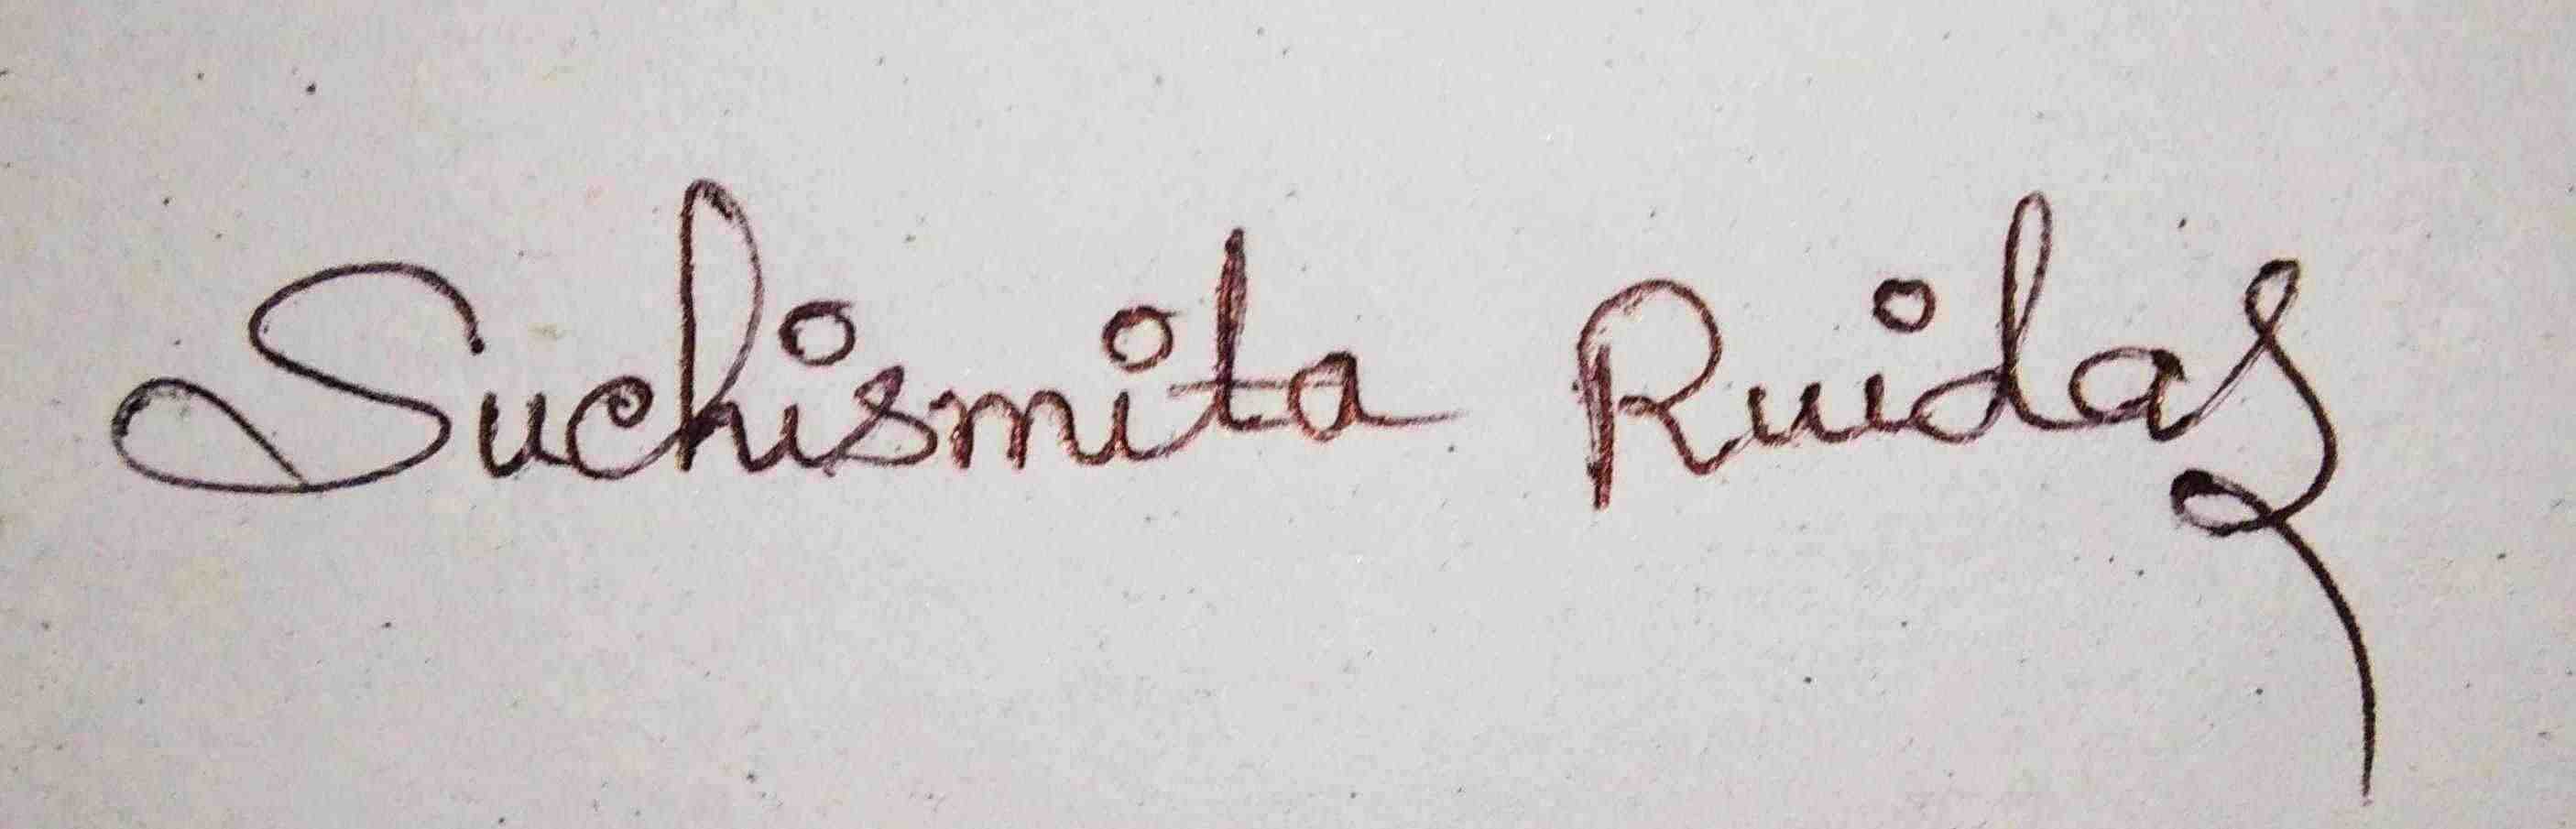 Suchismita Ruidas